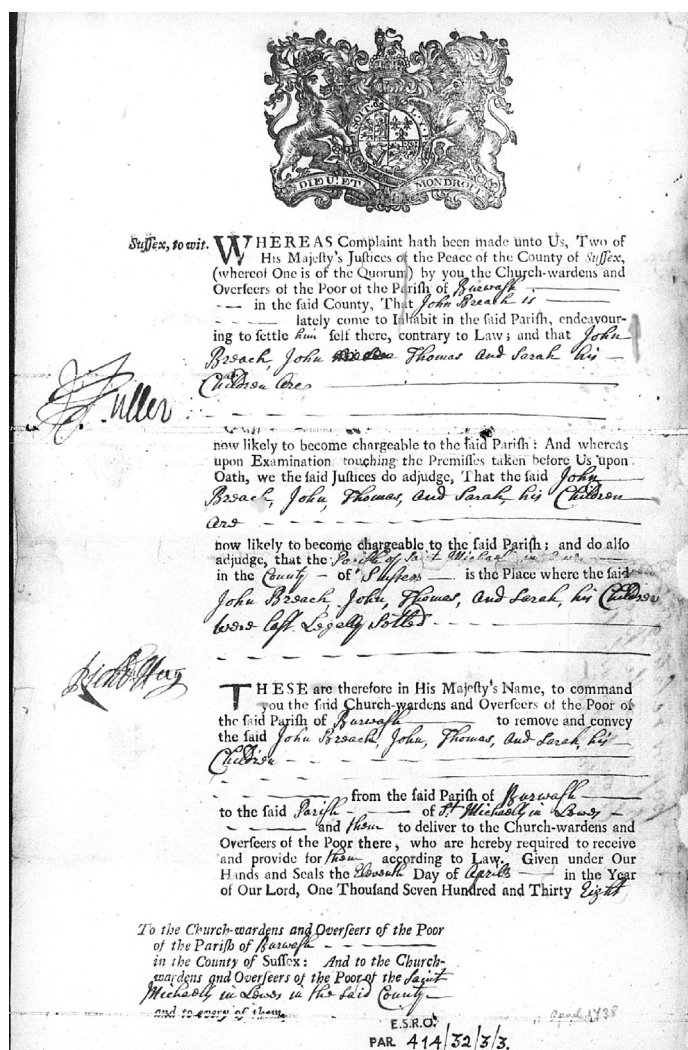 DIEU·ET MONDROIT
Suſſex, to wit. WHEREAS Complaint hath been made unto Us, Two of
His Majeſty's Juſtices of the Peace of the County of Suſſex,
(whereof One is of the Quorum) by you the Church-wardens and
Overſeers of the Poor of the Pariſh of Burwaſh
in the ſaid County, That John Breach is
lately come to Inhabit in the ſaid Pariſh, endeavour-
ing to ſettle him ſelf there, contrary to Law; and that John
Breach, John Thomas and Sarah his
Children are
Fuller
now likely to become chargeable to the ſaid Pariſh: And whereas
upon Examination touching the Premiſſes taken before Us upon
Oath, we the ſaid Juſtices do adjudge, That the ſaid John
Breach, John, Thomas, and Sarah, his Children
are
now likely to become chargeable to the ſaid Pariſh; and do alſo
adjudge, that the Pariſh of Saint Michael in
in the County of Suſſex is the Place where the ſaid
John Breach, John, Thomas, and Sarah, his Children
were laſt Legally Setled
THESE are therefore in His Majeſty's Name, to command
you the ſaid Church-wardens and Overſeers of the Poor of
the ſaid Pariſh of Burwaſh to remove and convey
the ſaid John Breach, John, Thomas, and Sarah, his
Children
from the ſaid Pariſh of Burwaſh
to the ſaid Pariſh of St. Michaells in Lewes
and them to deliver to the Church-wardens and
Overſeers of the Poor there, who are hereby required to receive
and provide for them according to Law. Given under Our
Hands and Seals the Eleventh Day of Aprill in the Year
of Our Lord, One Thouſand Seven Hundred and Thirty Eight
To the Church-wardens and Overſeers of the Poor
of the Pariſh of Burwaſh
in the County of Suſſex: And to the Church-
wardens and Overſeers of the Poor of the Saint
Michaells in Lewes in the ſaid County
and to every of them.
April 1738
E.S.R.O.
PAR 414/32/3/3.